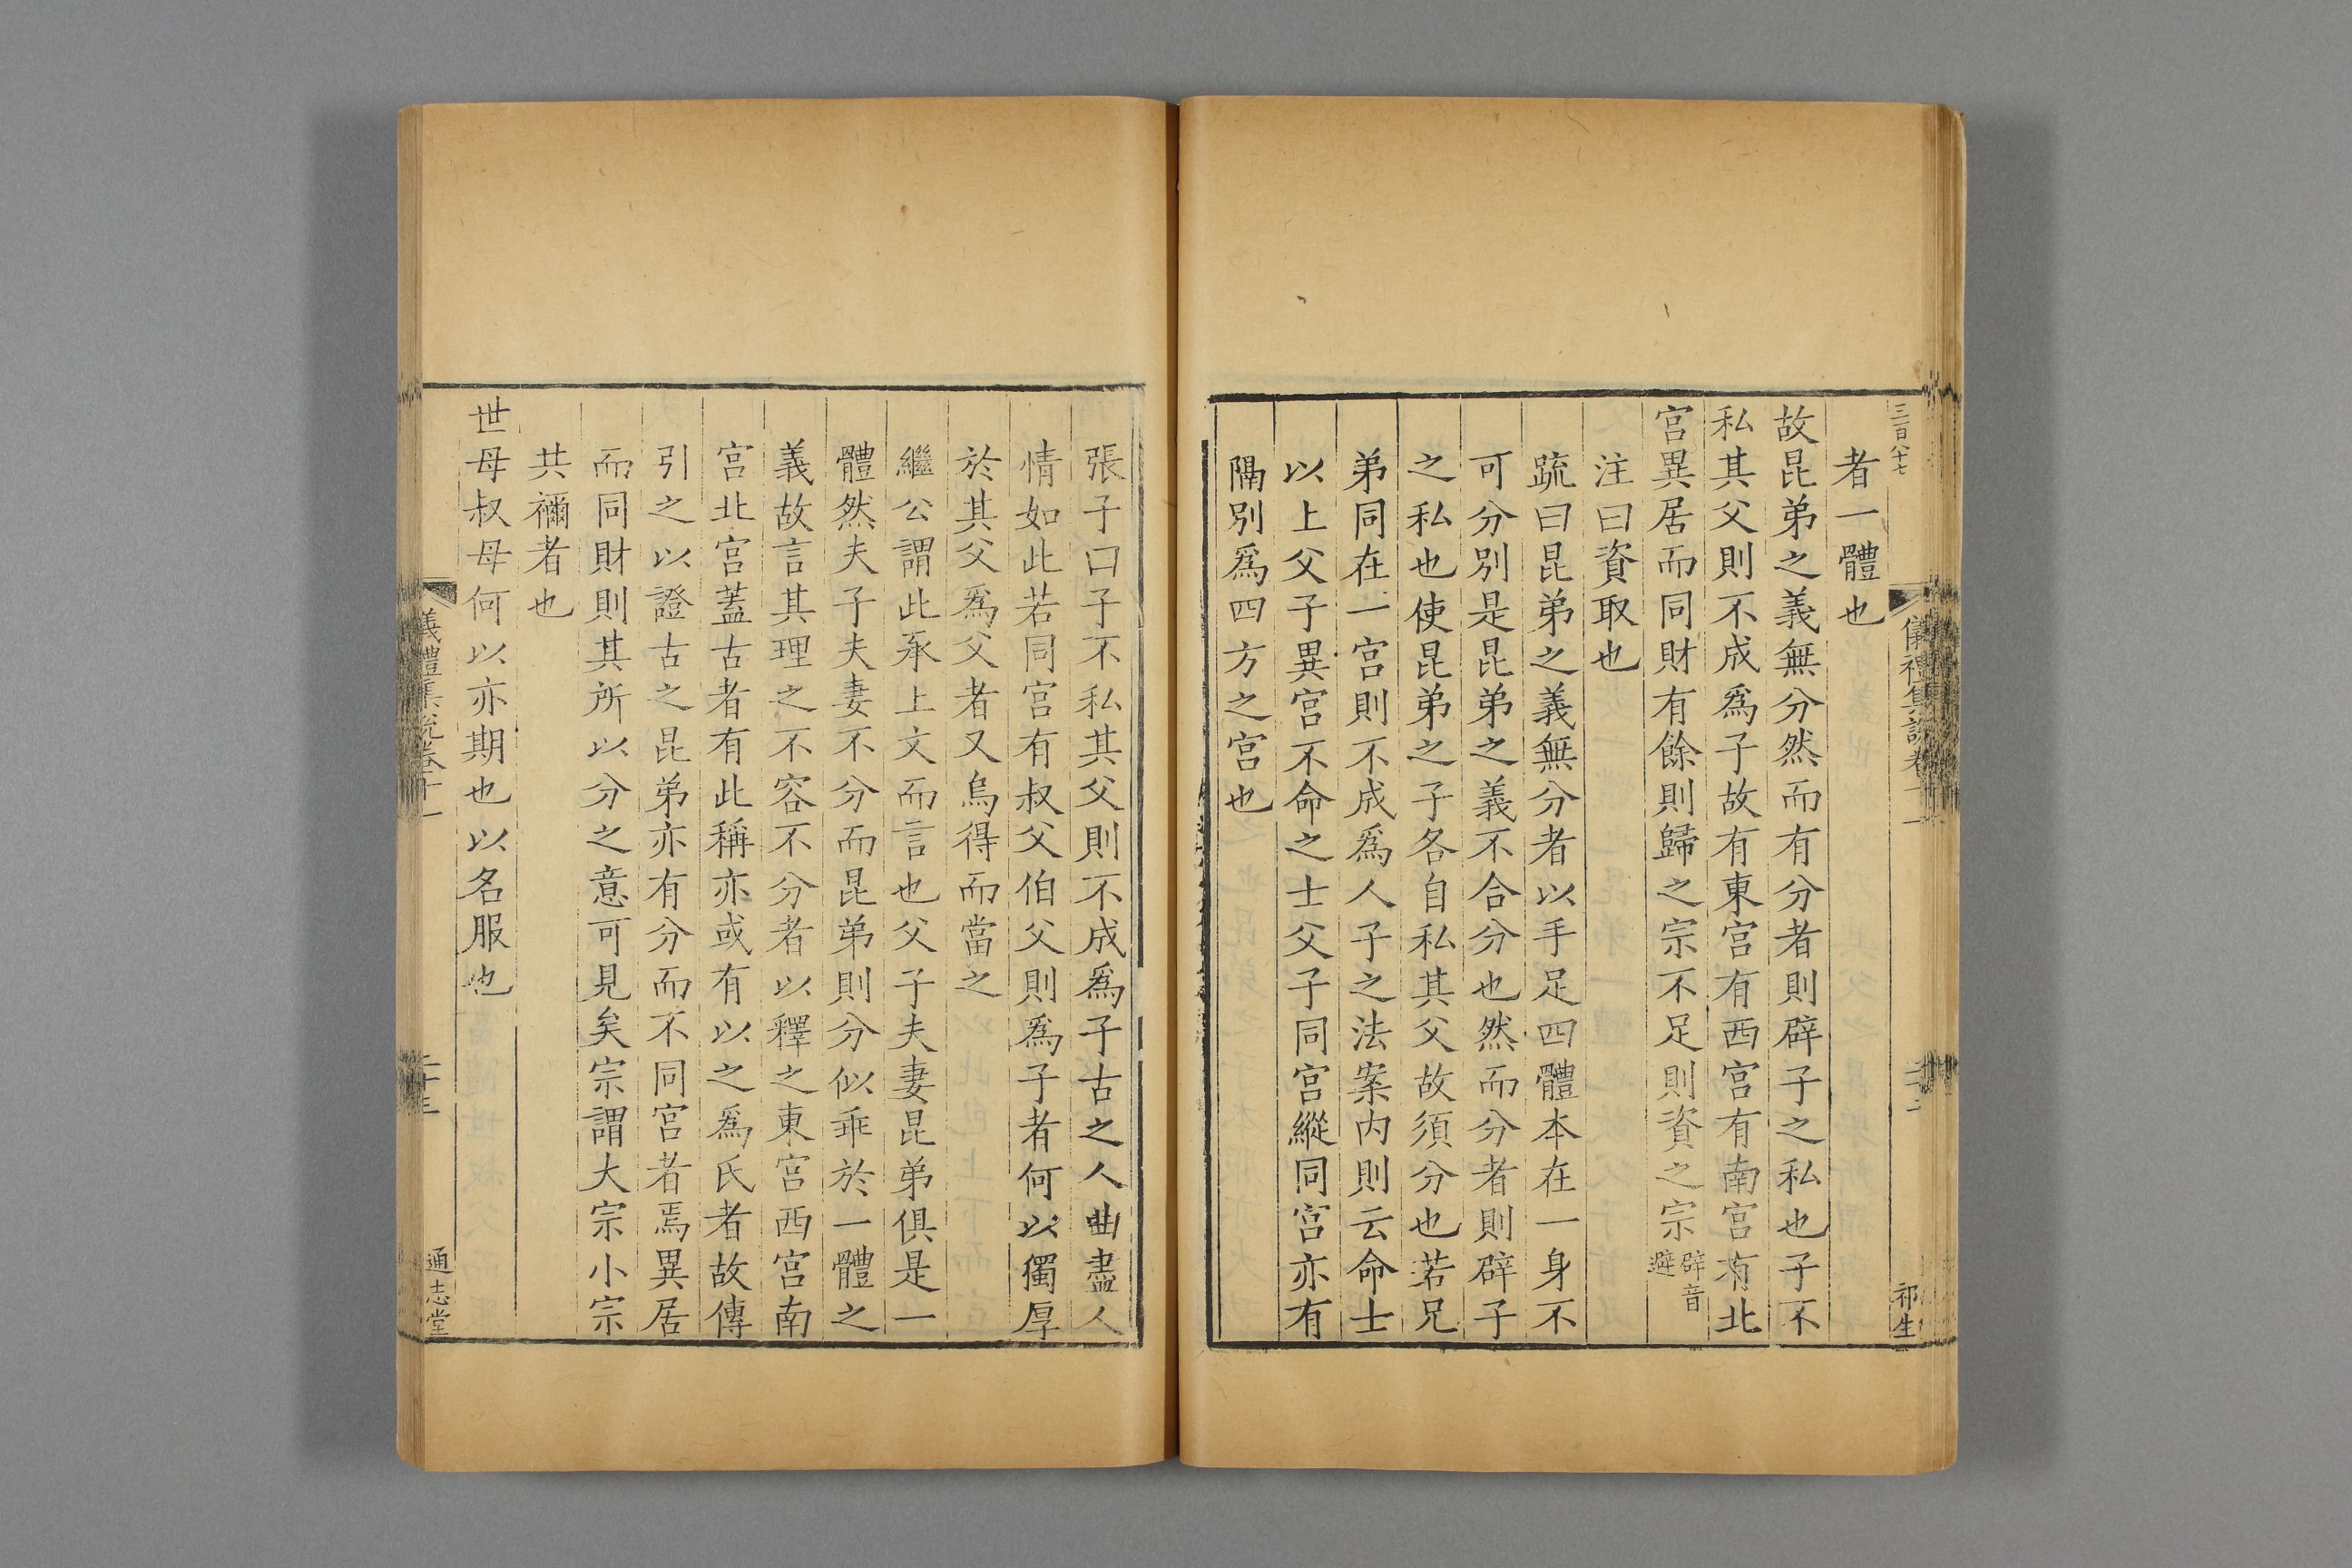 三百八十七
儀禮集說卷十一
祁生
者一體也
故昆弟之義無分然而有分者則辟子之私也子不
私其父則不成爲子故有東宮有西宮有南宮有北
宮異居而同財有餘則歸之宗不足則資之宗辟音避
注曰資取也
疏曰昆弟之義無分者以手足四體本在一身不
可分別是昆弟之義不合分也然而分者則辟子
之私也使昆弟之子各自私其父故須分也若兄
弟同在一宮則不成爲人子之法案内則云命士
以上父子異宮不命之士父子同宮縱同宮亦有
隔別爲四方之宮也
張子曰子不私其父則不成爲子古之人曲盡人
情如此若同宮有叔父伯父則爲子者何以獨厚
於其父爲父者又烏得而當之
繼公謂此承上文而言也父子夫妻昆弟俱是一
體然夫子夫妻不分而昆弟則分似乖於一體之
義故言其理之不容不分者以釋之東宮西宮南
宮北宮蓋古者有此稱亦或有以之爲氏者故傳
引之以證古之昆弟亦有分而不同宮者焉異居
而同財則其所以分之意可見矣宗謂大宗小宗
共禰者也
世母叔母何以亦期也以名服也
儀禮集說卷十一
二十三
通志堂